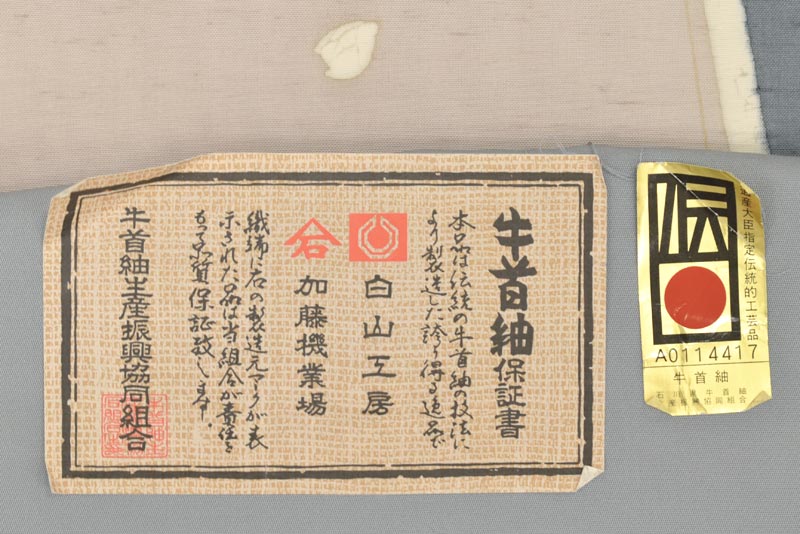 牛首紬保証書
本品は伝統の牛首紬の技法に
より製造した誇り得る逸品で
白山工房
加藤機業場
織端に右の製造元マークが表
示された品は当組合が責任を
もって品質保証致します。
牛首紬生産振興協同組合
産大臣指定伝統的工芸品
A0114417
牛首紬
石川県牛首紬
生産振興協同組合